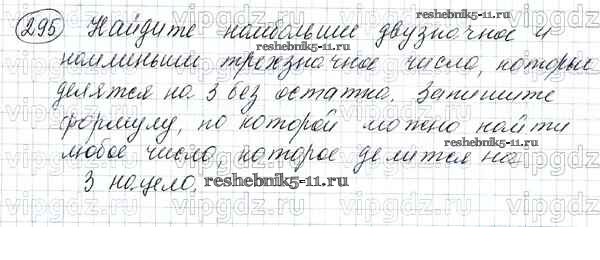 295 Найдите наибольшее двузначное и
наименьшее трехзначное число, которые
делятся на 3 без остатка. Запишите
формулу, по которой можно найти
любое число, которое делится на
3 нацело.
reshebnik5-11.ru
reshebnik5-11.ru
reshebnik5-11.ru
vipgdz